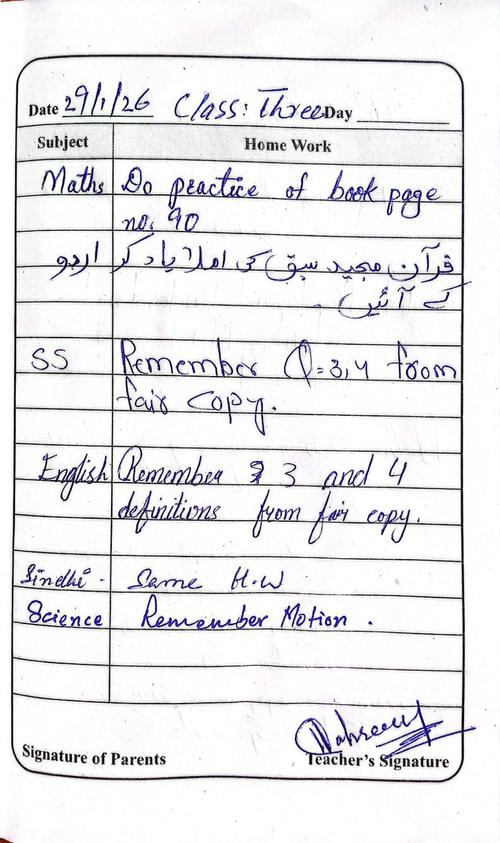 Date 29/1/26 Class: Three Day
Subject Home Work
Maths Do practice of book page
no. 90
اردو قرآن مجید سبق کی املا یاد کر
کے آئیں ۔
SS Remember Q=3,4 from
fair copy.
English Remember 3 and 4
definitions from fair copy.
Sindhi - Same H.W
Science Remember Motion .
Signature of Parents Teacher's Signature